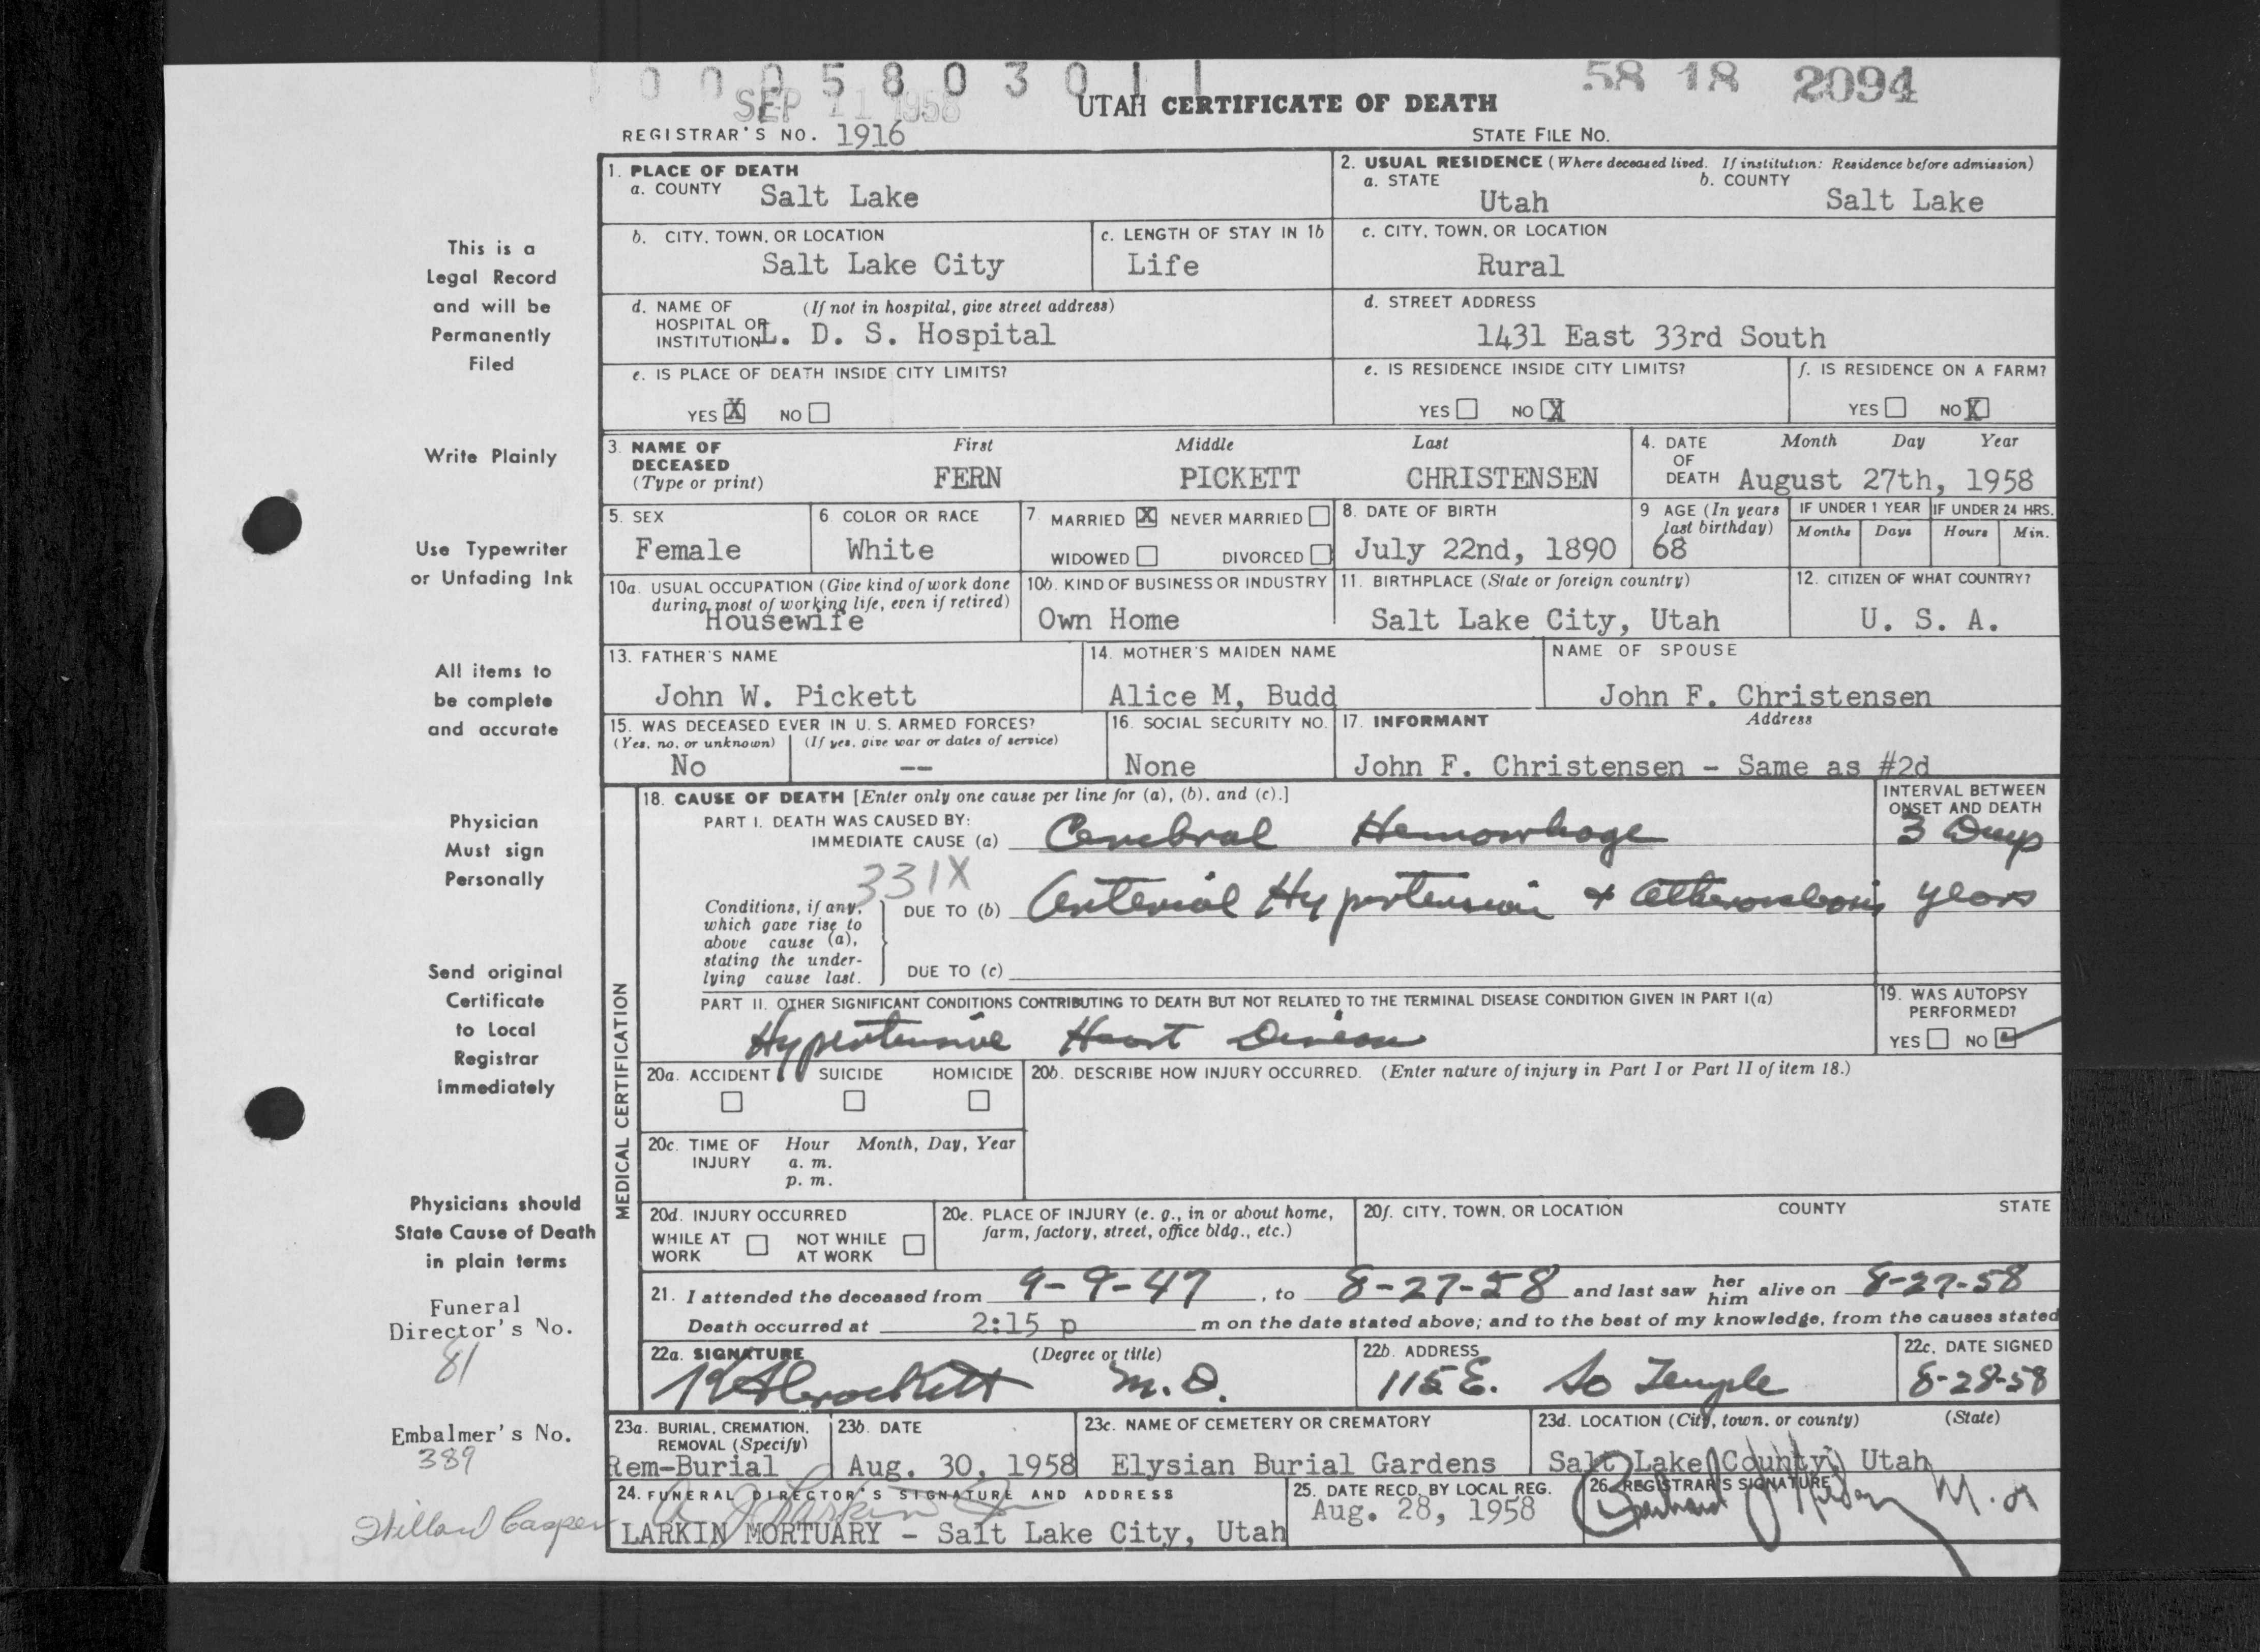 0 0 0 5 8 0 3 0 1 1
58 18 2094
SEP 11 1958
UTAH CERTIFICATE OF DEATH
REGISTRAR'S NO. 1916
STATE FILE NO.
This is a
Legal Record
and will be
Permanently
Filed
Write Plainly
Use Typewriter
or Unfading Ink
All items to
be complete
and accurate
Physician
Must sign
Personally
Send original
Certificate
to Local
Registrar
immediately
Physicians should
State Cause of Death
in plain terms
Funeral
Director's No.
81
Embalmer's No.
389
1. PLACE OF DEATH
a. COUNTY Salt Lake
2. USUAL RESIDENCE (Where deceased lived. If institution: Residence before admission)
a. STATE Utah b. COUNTY Salt Lake
b. CITY, TOWN, OR LOCATION
Salt Lake City
c. LENGTH OF STAY IN 1b
Life
c. CITY, TOWN, OR LOCATION
Rural
d. NAME OF (If not in hospital, give street address)
HOSPITAL OR
INSTITUTION L. D. S. Hospital
d. STREET ADDRESS
1431 East 33rd South
e. IS PLACE OF DEATH INSIDE CITY LIMITS?
YES X NO
e. IS RESIDENCE INSIDE CITY LIMITS?
YES NO X
f. IS RESIDENCE ON A FARM?
YES NO X
3. NAME OF
DECEASED
(Type or print)
First Middle Last
FERN PICKETT CHRISTENSEN
4. DATE Month Day Year
OF
DEATH August 27th, 1958
5. SEX
Female
6. COLOR OR RACE
White
7. MARRIED X NEVER MARRIED
WIDOWED DIVORCED
8. DATE OF BIRTH
July 22nd, 1890
9. AGE (In years
last birthday)
68
IF UNDER 1 YEAR
Months Days
IF UNDER 24 HRS.
Hours Min.
10a. USUAL OCCUPATION (Give kind of work done
during most of working life, even if retired)
Housewife
10b. KIND OF BUSINESS OR INDUSTRY
Own Home
11. BIRTHPLACE (State or foreign country)
Salt Lake City, Utah
12. CITIZEN OF WHAT COUNTRY?
U. S. A.
13. FATHER'S NAME
John W. Pickett
14. MOTHER'S MAIDEN NAME
Alice M, Budd
NAME OF SPOUSE
John F. Christensen
15. WAS DECEASED EVER IN U. S. ARMED FORCES?
(Yes, no, or unknown) (If yes, give war or dates of service)
No --
16. SOCIAL SECURITY NO.
None
17. INFORMANT Address
John F. Christensen - Same as #2d
MEDICAL CERTIFICATION
18. CAUSE OF DEATH [Enter only one cause per line for (a), (b), and (c).]
INTERVAL BETWEEN
ONSET AND DEATH
PART I. DEATH WAS CAUSED BY:
IMMEDIATE CAUSE (a) Cerebral Hemorrhage 3 Days
331X
Conditions, if any,
which gave rise to
above cause (a),
stating the under-
lying cause last.
DUE TO (b) Arterial Hypertension & Atherosclerosis years
DUE TO (c)
PART II. OTHER SIGNIFICANT CONDITIONS CONTRIBUTING TO DEATH BUT NOT RELATED TO THE TERMINAL DISEASE CONDITION GIVEN IN PART I(a)
Hypertensive Heart Disease
19. WAS AUTOPSY
PERFORMED?
YES NO
20a. ACCIDENT SUICIDE HOMICIDE
20b. DESCRIBE HOW INJURY OCCURRED. (Enter nature of injury in Part I or Part II of item 18.)
20c. TIME OF Hour Month, Day, Year
INJURY a. m.
p. m.
20d. INJURY OCCURRED
WHILE AT NOT WHILE
WORK AT WORK
20e. PLACE OF INJURY (e. g., in or about home,
farm, factory, street, office bldg., etc.)
20f. CITY, TOWN, OR LOCATION COUNTY STATE
21. I attended the deceased from 9-9-47, to 8-27-58 and last saw her him alive on 8-27-58
Death occurred at 2:15 p m on the date stated above; and to the best of my knowledge, from the causes stated
22a. SIGNATURE (Degree or title)
M.D.
22b. ADDRESS
115 E. So Temple
22c. DATE SIGNED
8-28-58
23a. BURIAL, CREMATION,
REMOVAL (Specify)
Rem-Burial
23b. DATE
Aug. 30, 1958
23c. NAME OF CEMETERY OR CREMATORY
Elysian Burial Gardens
23d. LOCATION (City, town, or county) (State)
Salt Lake County, Utah
24. FUNERAL DIRECTOR'S SIGNATURE AND ADDRESS
LARKIN MORTUARY - Salt Lake City, Utah
25. DATE RECD. BY LOCAL REG.
Aug. 28, 1958
26. REGISTRAR'S SIGNATURE